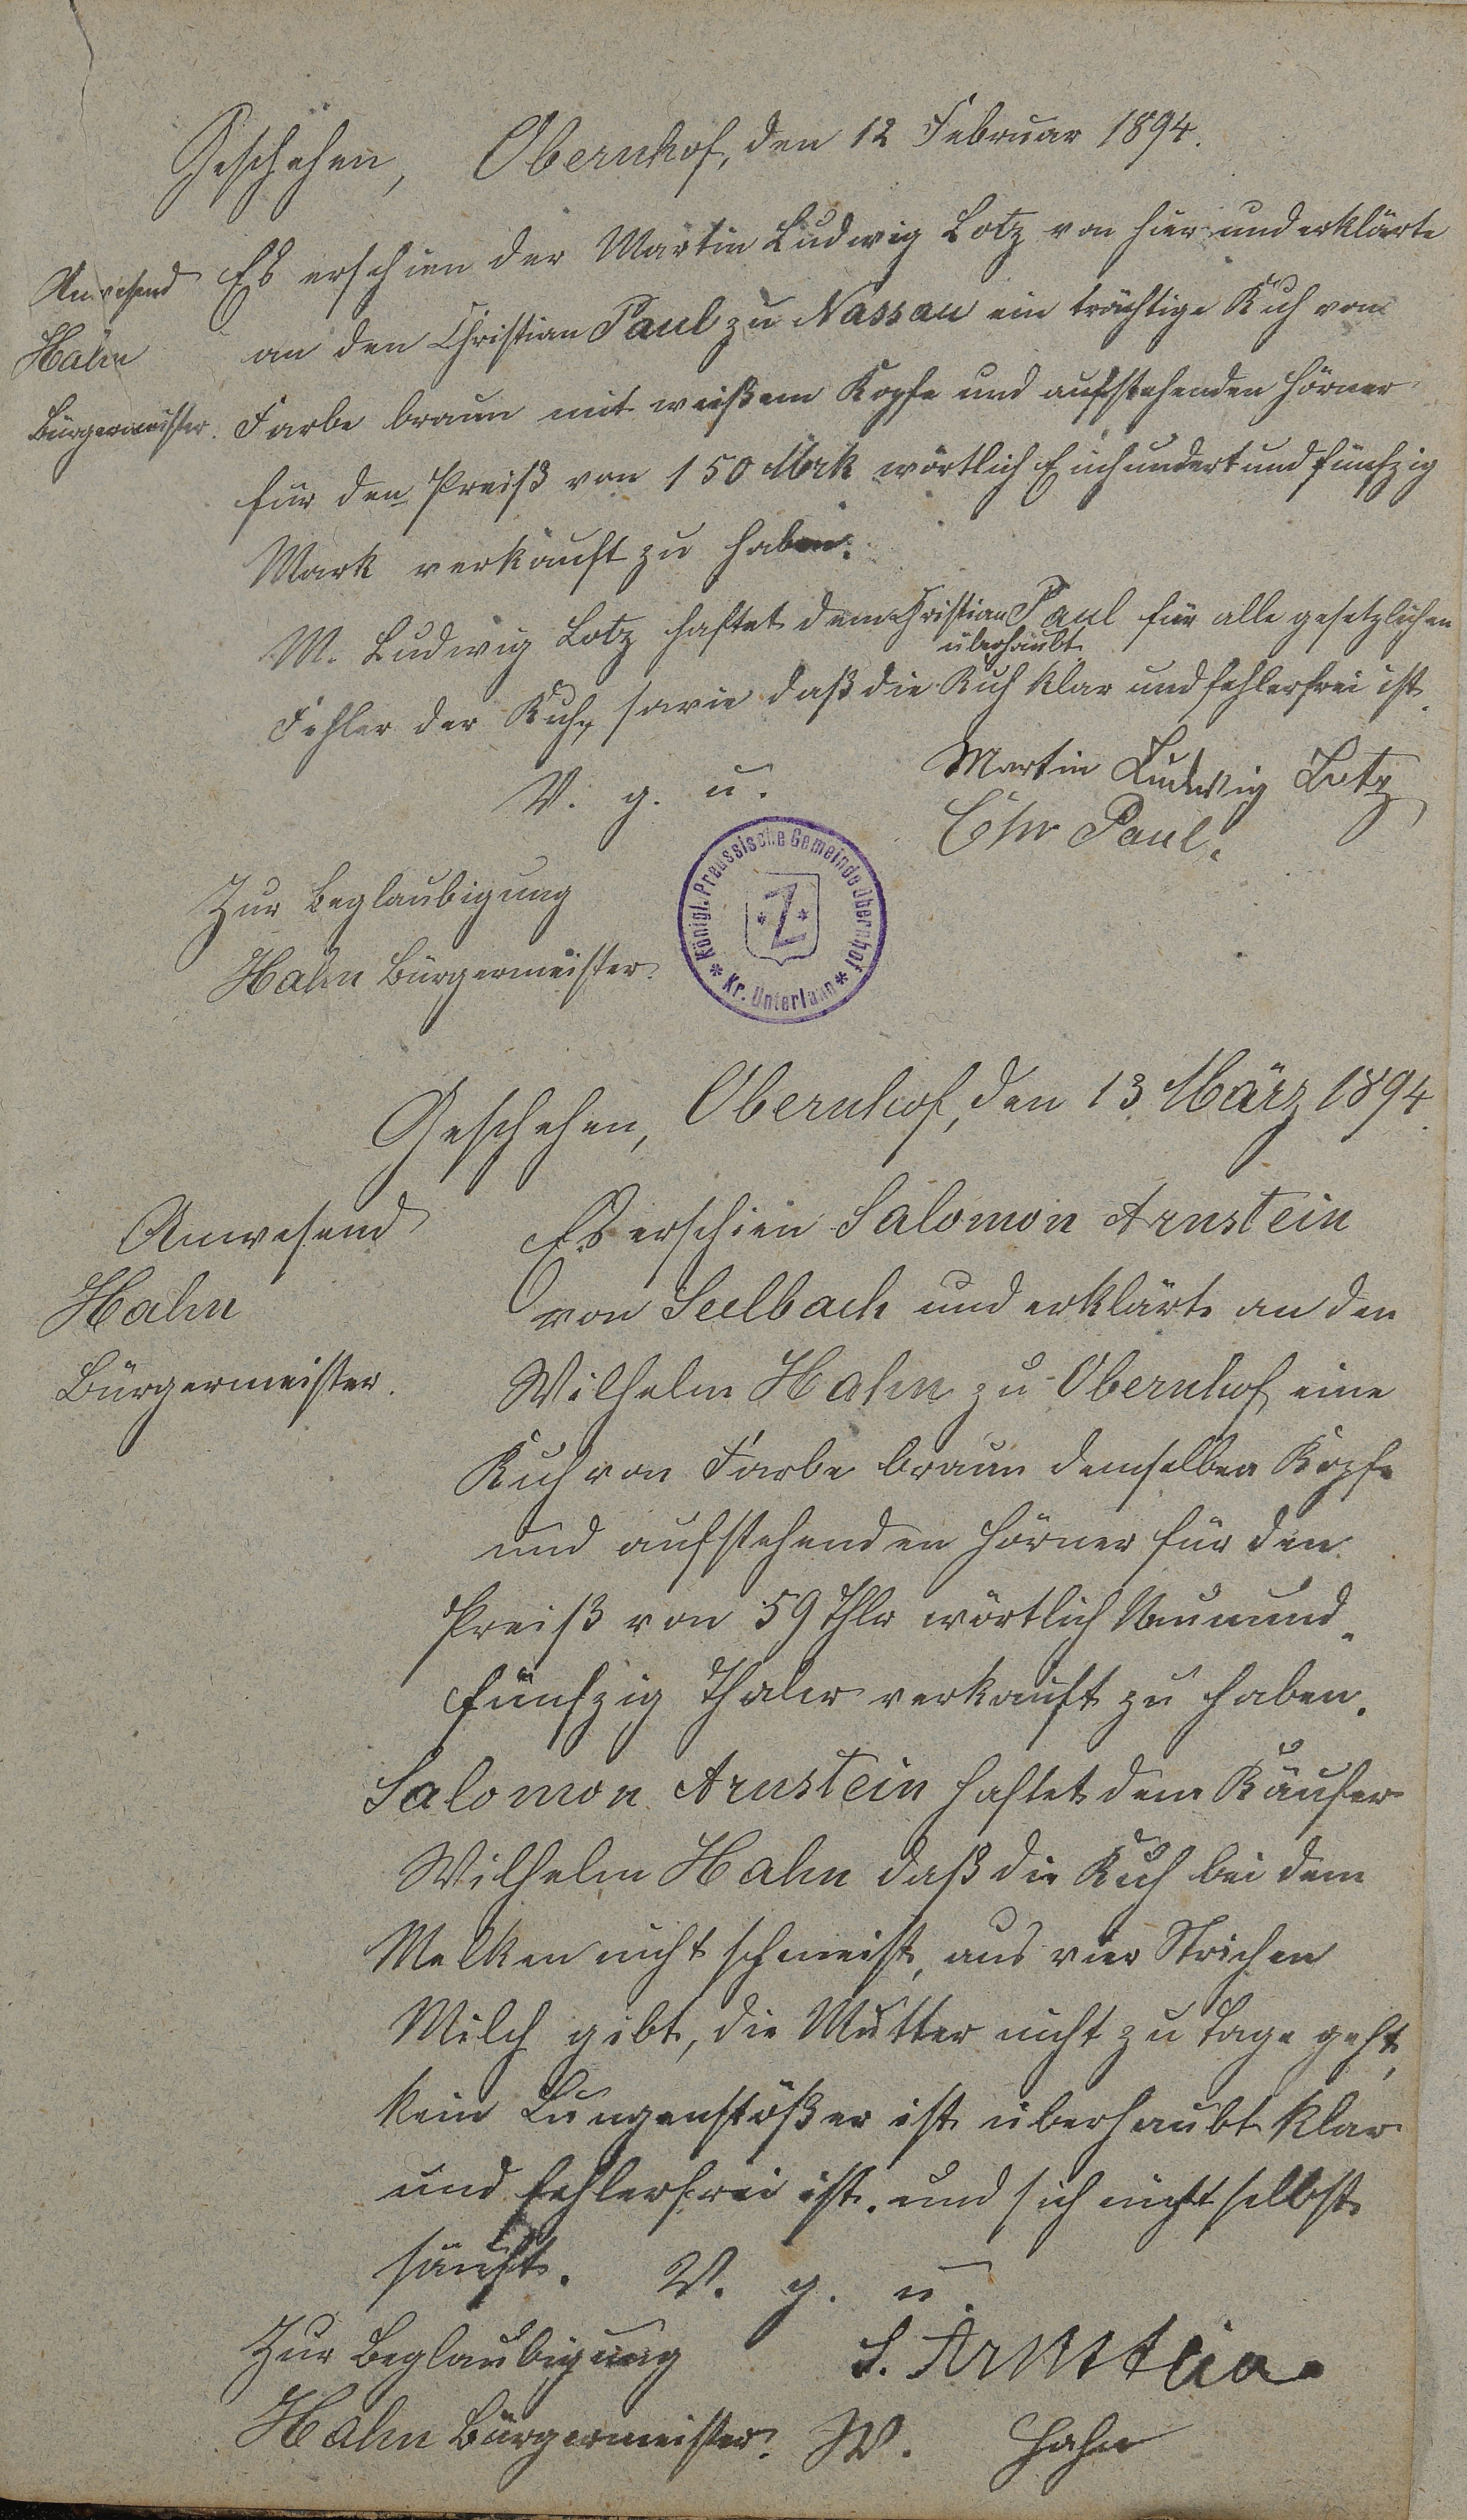 Geschehen, Obernhof, den 12 Februar 1894.
Anwesend
Hahn
Bürgermeister.
Es erschien der Martin Ludwig Lotz von hier und erklärte
an den Christian Paul zu Nassau ein trächtige Kuh von
Farbe braun mit weißem Kopfe und aufstehenden Hörner
für den Preiß von 150 Mrk wörtlich Einhundertundfünfzig
Mark verkauft zu haben.
M. Ludwig Lotz haftet dem Christian Paul für alle gesetzlichen
überhaubt
Fehler der Kuh, sowie daß die Kuh klar und fehlerfrei ist.
V. g. u.
Martin Ludwig Lotz
Chr Paul.
Zur Beglaubigung
Hahn Bürgermeister.
Königl. Preussische Gemeinde Obernhof
* Kr. Unterlahn *
Geschehen, Obernhof, den 13 März 1894.
Anwesend
Hahn
Bürgermeister.
Es erschien Salomon Arnstein
von Seelbach und erklärte an den
Wilhelm Hahn zu Obernhof eine
Kuh von Farbe braun demselben Kopfe
und aufstehenden Hörner für den
Preiß von 59 Thlr wörtlich Neunund-
fünfzig Thaler verkauft zu haben.
Salomon Arnstein haftet dem Käufer
Wilhelm Hahn daß die Kuh bei dem
Melken nicht schmeist, aus vier Strichen
Milch gibt, die Mutter nicht zu Tage geht,
kein Lungenstößer ist überhaubt klar
und fehlerfrei ist. und sich nicht selbst
säuft. V. g. u.
Zur Beglaubigung
S. Arnstein.
Hahn Bürgermeister. W. Hahn